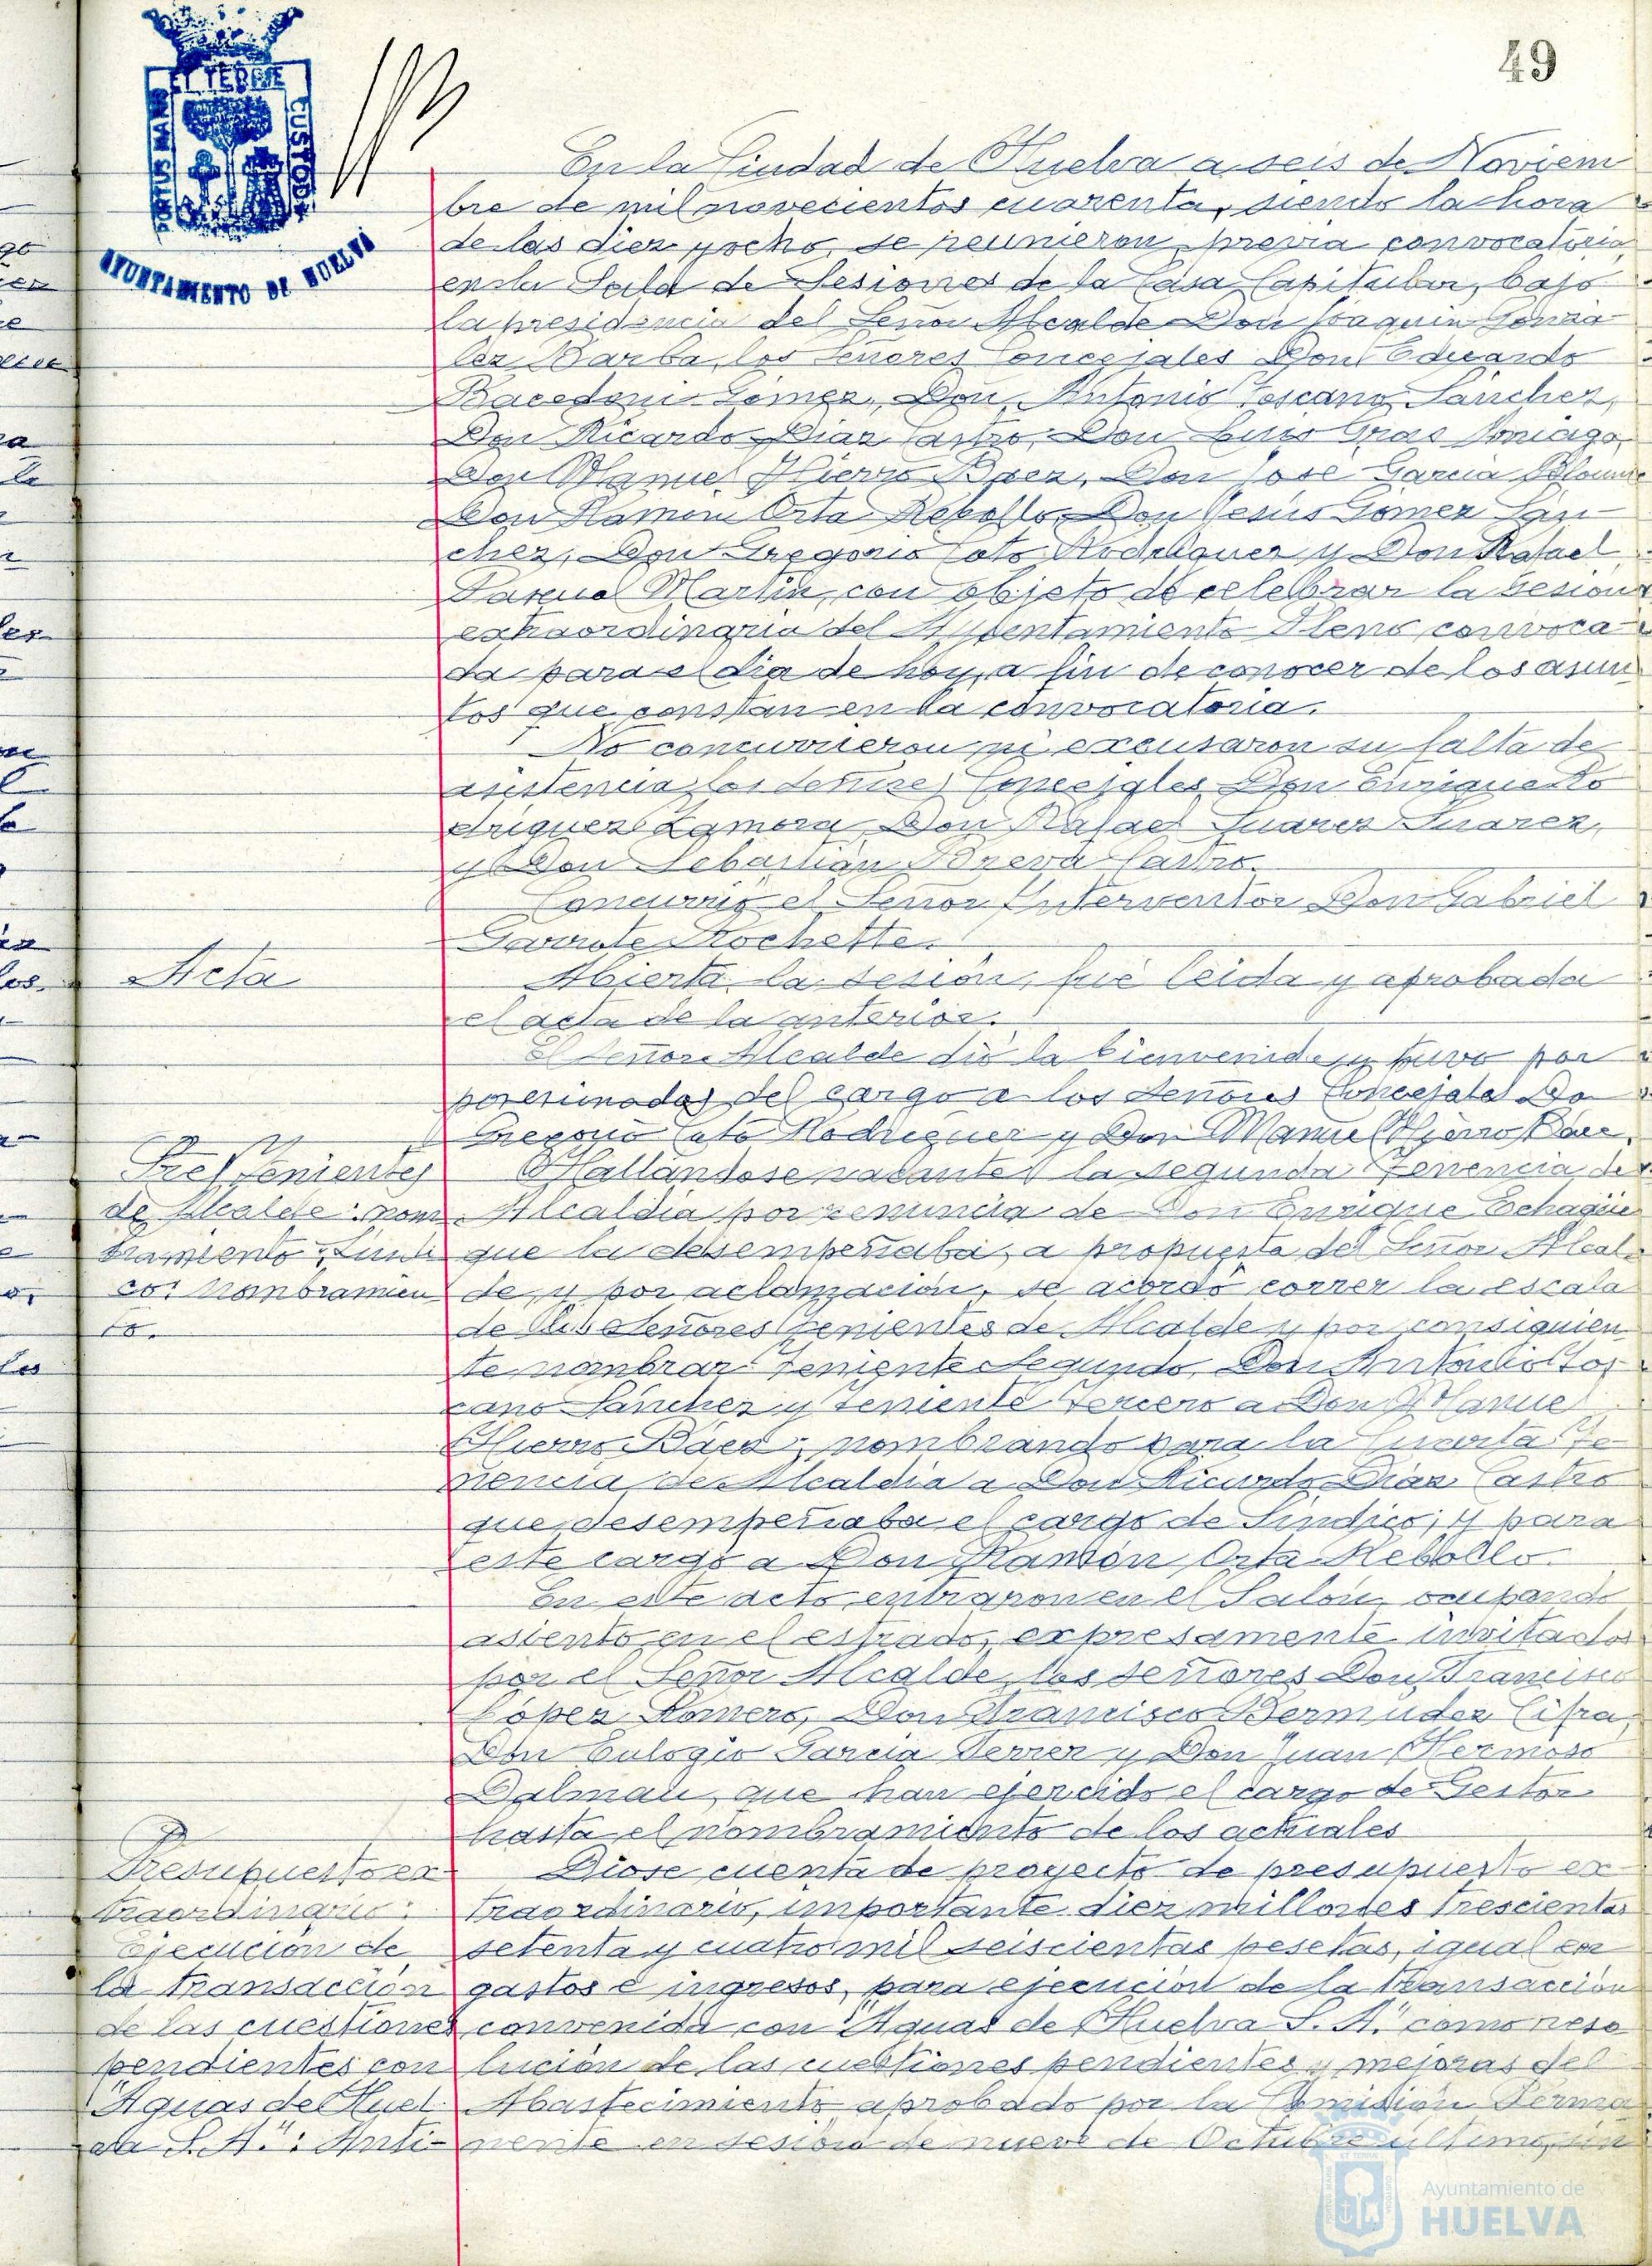 49
PORTUS MARIS
ET TERRE
CUSTODIA
AYUNTAMIENTO DE HUELVA
En la Ciudad de Huelva a seis de Noviem
bre de mil novecientos cuarenta, siendo la hora
de las diez y ocho, se reunieron, previa convocatoria,
en la Sala de Sesiones de la Casa Capitular, bajo
la presidencia del Señor Alcalde Don Joaquin Gonzá
lez Barba, los Señores Concejales Don Eduardo
Bacedoni Gómez, Don Antonio Toscano Sánchez,
Don Ricardo Diaz Castro, Don Luis Gras
Don Manuel Hierro Baez, Don Jose Garcia
Don Ramón Orta Rebollo, Don Jesús Gómez Sán
chez, Don Gregorio Cots Rodriguez y Don Rafael
Martin, con objeto de celebrar la sesion
extraordinaria del Ayuntamiento Pleno convoca
da para el dia de hoy, a fin de conocer de los asun
tos que constan en la convocatoria.
No concurrieron ni excusaron su falta de
asistencia los señores Concejales Don Enrique Ro
driguez Zamora, Don Rafael Suarez Suarez,
y Don Sebastián Castro.
Concurrió el Señor Interventor Don Gabriel
Garrote Rochette.
Acta
Abierta la sesión, fué leida y aprobada
el acta de la anterior.
El Señor Alcalde dió la bienvenida y tuvo por
posesionados del cargo a los Señores Concejales Do
Gregorio Cots Rodriguez y Don Manuel Hierro Báez.
Tres Tenientes
de Alcalde: nom
bramiento. Síndi
co: Nombramien
to.
Hallandose vacante la segunda Tenencia de
Alcaldia por renuncia de Don Enrique Echagüe
que la desempeñaba, a propuesta del Señor Alcal
de, y por aclamación, se acordó correr la escala
de los Señores Tenientes de Alcalde y por consiguien
te nombrar Teniente Segundo Don Antonio Tos
cano Sánchez y Teniente Tercero a Don Manuel
Hierro Báez; nombrando para la Cuarta Te
nencia de Alcaldia a Don Ricardo Diaz Castro
que desempeñaba el cargo de Sindico; y para
este cargo a Don Ramón Orta Rebollo.
En este acto entraron en el Salón, ocupando
asiento en el estrado, expresamente invitados
por el Señor Alcalde, los Señores Don Francisco
López Romero, Don Francisco Bermudez Cifra,
Don Eulogio Garcia Ferrer y Don Juan Hermoso
Dalmau, que han ejercido el cargo de Gestor
hasta el nombramiento de los actuales
Presupuesto ex
traordinario:
Ejecución de
la transacción
de las cuestiones
pendientes con
"Aguas de Huel
va S.A.": Anti-
Diose cuenta de proyecto de presupuesto ex
traordinario, importante diez millones trescientas
setenta y cuatro mil seiscientas pesetas, igual en
gastos e ingresos, para ejecución de la transacción
convenida con "Aguas de Huelva S.A." como reso
lución de las cuestiones pendientes y mejoras del
Abastecimiento aprobado por la Comisión Perma
nente en sesión de nueve de Octubre último, un
Ayuntamiento de
HUELVA